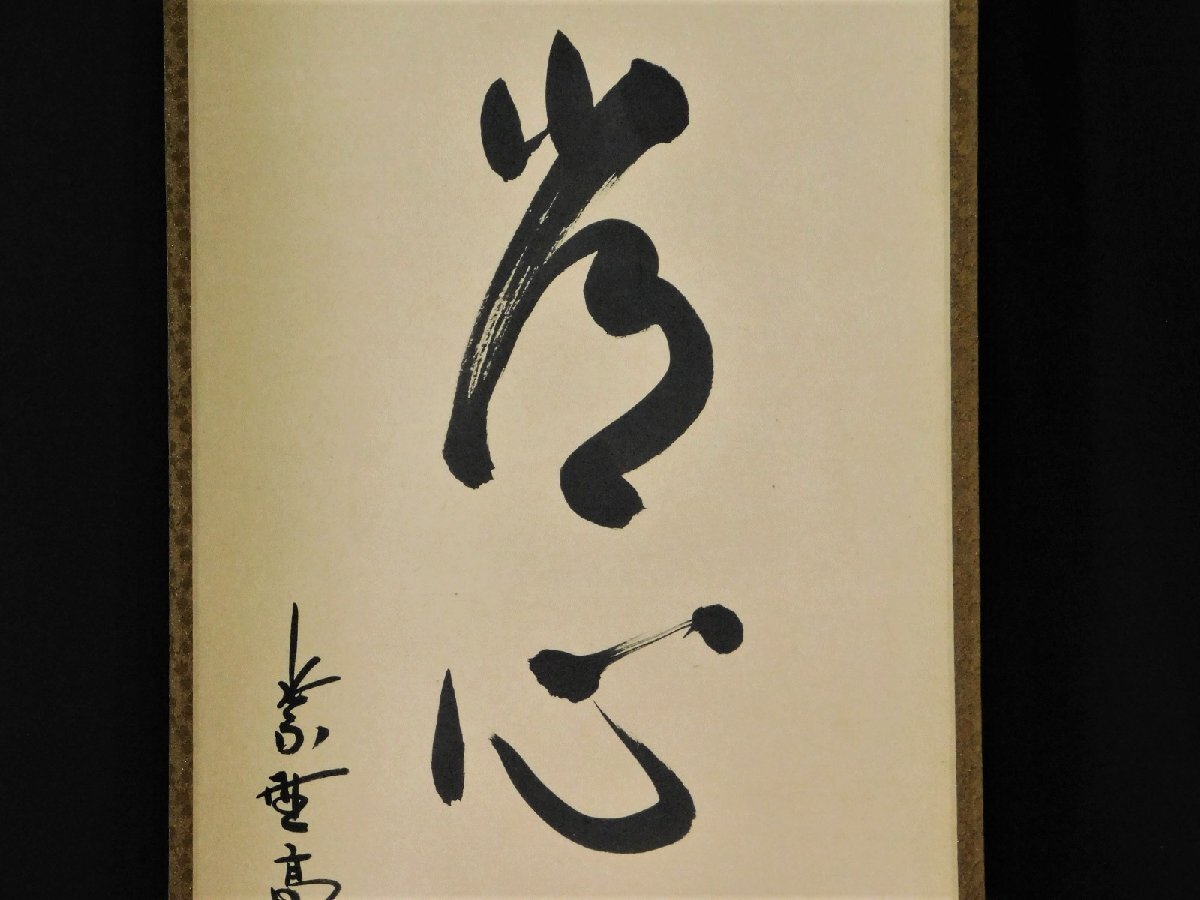 常心
紫野高